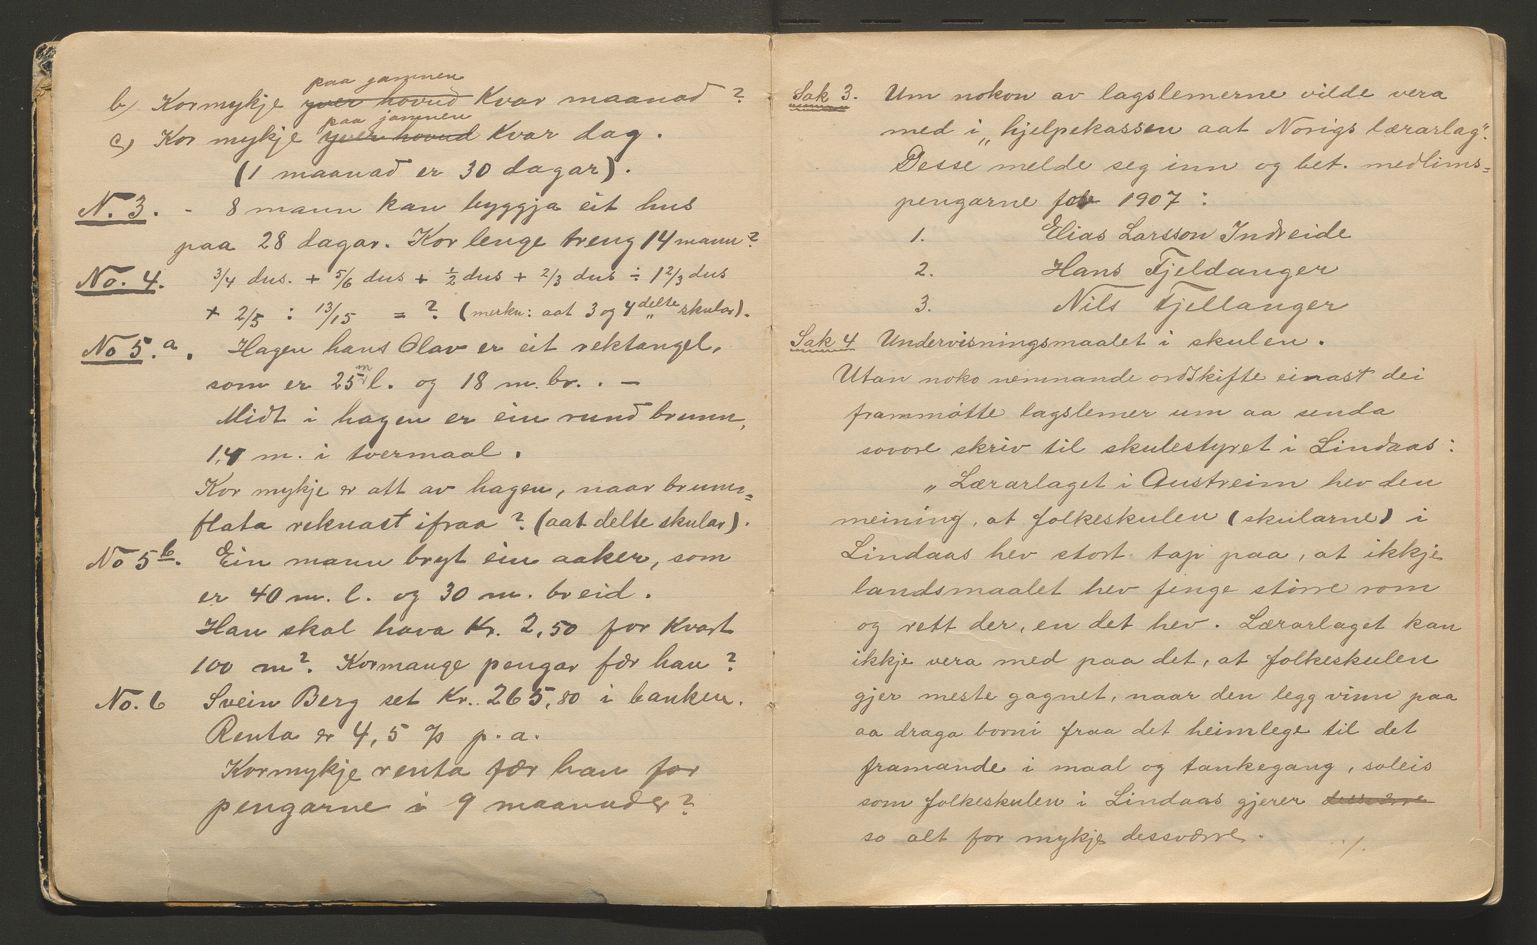 paa jamnen
b) Kormykje yver hovud kvar maanad?
paa jamnen
c) Kor mykje yver hovud kvar dag.
(1 maanad er 30 dagar).
N. 3. - 8 mann kan byggja eit hus
paa 28 dagar. Kor lenge treng 14 mann?
No. 4. 3/4 dus. + 5/6 dus + 1/2 dus + 2/3 dus ÷ 1 2/3 dus
+ 2/5 : 13/15 = ? (merkn: aat 3 og 4 delte skular).
No 5.a. Hagen hans Olav er eit rektangel,
som er 25 m l. og 18 m. br. . —
Midt i hagen er ein rund brunn,
1,4 m. i tvermaal.
Kor mykje er att av hagen, naar brunn=
flata reknast ifraa? (aat delte skular).
No 5b. Ein mann bryt ein aaker, som
er 40 m. l. og 30 m. breid.
Han skal hava Kr. 2,50 for kvart
100 m². Kormange pengar fær han?
No. 6 Svein Berg set Kr. 265,80 i banken.
Renta er 4,5 % p.a.
Kormykje renta fær han for
pengarne i 9 maanader?
Sak 3. Um nokon av lagslemerne vilde vera
med i „hjelpekassen aat Norigs lærarlag".
Desse melde seg inn og bet. medlims=
pengarne for 1907:
1. Elias Larsson Indreide
2. Hans Fjeldanger
3. Nils Fjellanger
Sak 4 Undervisningsmaalet i skulen.
Utan noko nemnande ordskifte einast dei
frammøtte lagslemer um aa senda
sovore skriv til skulestyret i Lindaas:
„Lærarlaget i Austreim hev den
meining, at folkeskulen (skularne) i
Lindaas hev stort tap paa, at ikkje
landsmaalet hev fenge større rom
og rett der, en det hev. Lærarlaget kan
ikkje vera med paa det, at folkeskulen
gjer meste gagnet, naar den legg vinn paa
aa draga borni fraa det heimlege til det
framande i maal og tankegang, soleis
som folkeskulen i Lindaas gjerer dessværre
so alt for mykje dessværre.
./.